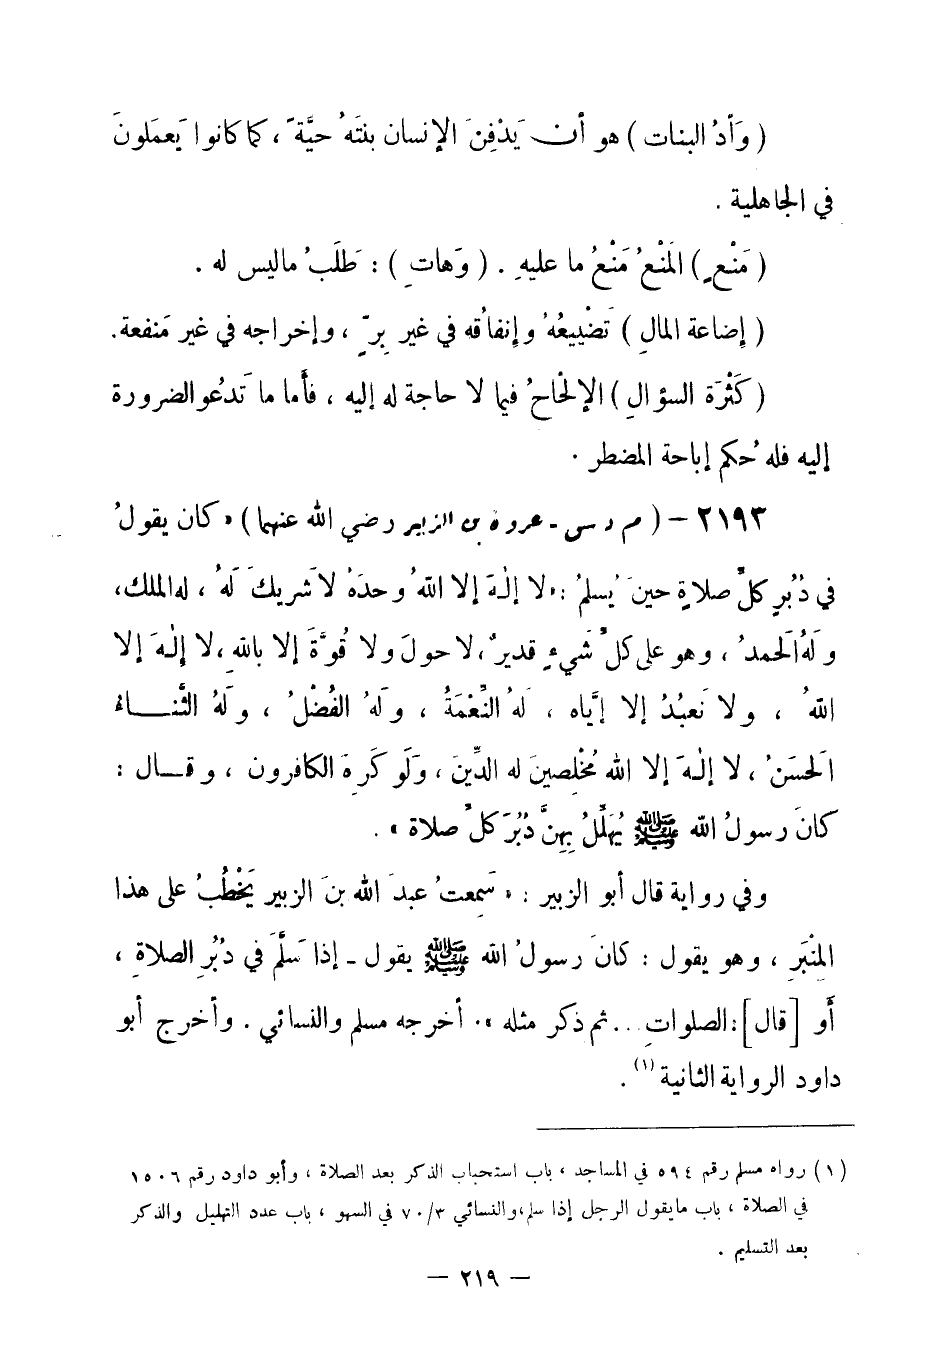 ( وَأدُ البنات ) هو أن يَدْفِنَ الإنسان بنتَهُ حيَّةً ، كما كانوا يَعمَلونَ
في الجاهلية .
( مَنْعٍ ) المَنْعُ مَنْعُ ما عليهِ . ( وَهاتِ ) : طَلَبُ ماليس له .
( إِضاعة المالِ ) تَضْييعُهُ وإِنفاقُه في غير بِرٍّ ، وإخراجه في غير مَنفعة.
( كَثْرَة السؤالِ ) الإلْحاحُ فيما لا حاجة له إليه ، فأما ما تَدعُو الضرورة
إليه فله حُكم إباحة المضطر .
٢١٩٣ – ( م د س - عروة بن الزبير رضي الله عنهما ) « كان يقولُ
في دُبُرِ كلِّ صلاةٍ حينَ يُسلمُ : « لا إلهَ إلا اللهُ وحدَهُ لا شريكَ لَهُ ، له الملك،
ولَهُ الحَمدُ ، وهو على كلِّ شَيءٍ قديرٌ، لا حولَ ولا قُوَّةَ إلا باللهِ ، لا إِلهَ إلا
اللهُ ، ولا نَعبُدُ إلا إيَّاه ، لَهُ النِّعْمَةُ ، ولَهُ الفُضْلُ ، ولَهُ الثَّناءُ
الحَسَنُ ، لا إلهَ إلا الله مُخْلِصينَ له الدِّينَ ، ولَو كَرِهَ الكافرون ، وقال :
كانَ رسولُ الله ﷺ يُهَلِّلُ بِهِنَّ دُبُرَ كلِّ صلاة » .
وفي رواية قال أبو الزبير : « سَمِعتُ عبدَ الله بنَ الزبير يَخْطُبُ على هذا
المِنْبَرِ ، وهو يقول : كانَ رسولُ الله ﷺ يقول - إذا سَلَّمَ في دُبُرِ الصلاةِ ،
أَو [قال] : الصلواتِ ... ثم ذكر مثله » . أخرجه مسلم والنسائي . وأخرج أبو
داود الرواية الثانية (١) .
(١) رواه مسلم رقم ٥٩٤ في المساجد ، باب استحباب الذكر بعد الصلاة ، وأبو داود رقم ١٥٠٦
في الصلاة ، باب مايقول الرجل إذا سلم، والنسائي ٣/٧٠ في السهو ، باب عدد التهليل والذكر
بعد التسليم .
– ٢١٩ –